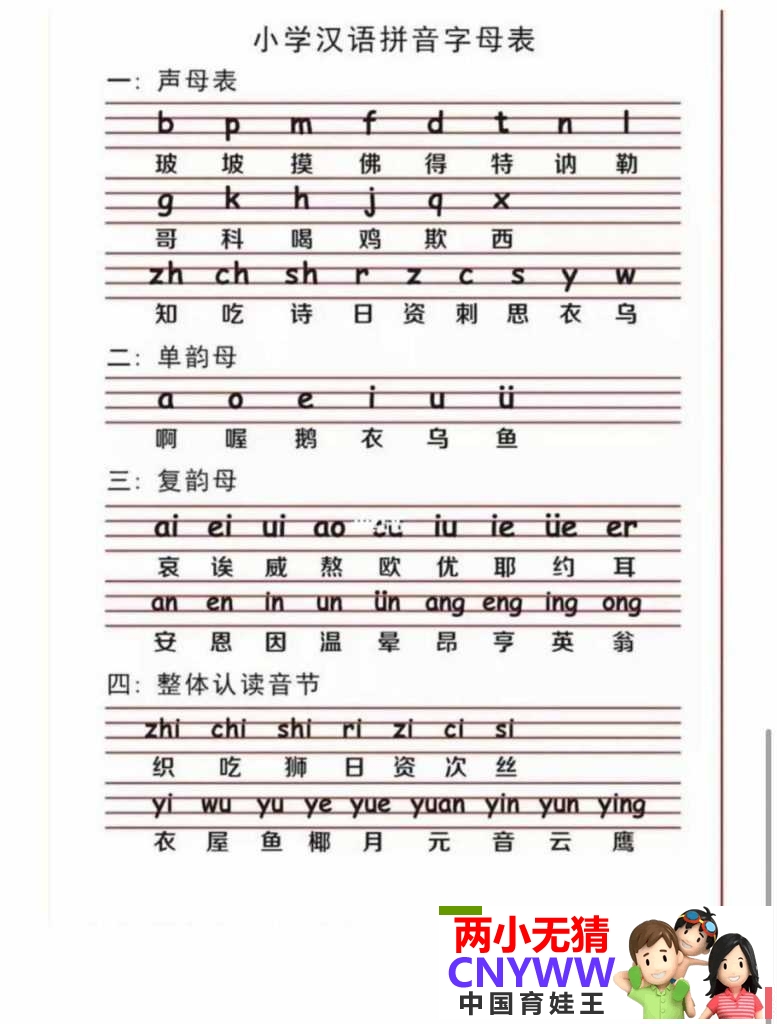 小学汉语拼音字母表
一：声母表
b p m f d t n l
玻 坡 摸 佛 得 特 讷 勒
g k h j q x
哥 科 喝 鸡 欺 西
zh ch sh r z c s y w
知 吃 诗 日 资 刺 思 衣 乌
二：单韵母
a o e i u ü
啊 喔 鹅 衣 乌 鱼
三：复韵母
ai ei ui ao iu ie üe er
哀 诶 威 熬 欧 优 耶 约 耳
an en in un ün ang eng ing ong
安 恩 因 温 晕 昂 亨 英 翁
四：整体认读音节
zhi chi shi ri zi ci si
织 吃 狮 日 资 次 丝
yi wu yu ye yue yuan yin yun ying
衣 屋 鱼 椰 月 元 音 云 鹰
两小无猜
CNYWW
中国育娃王